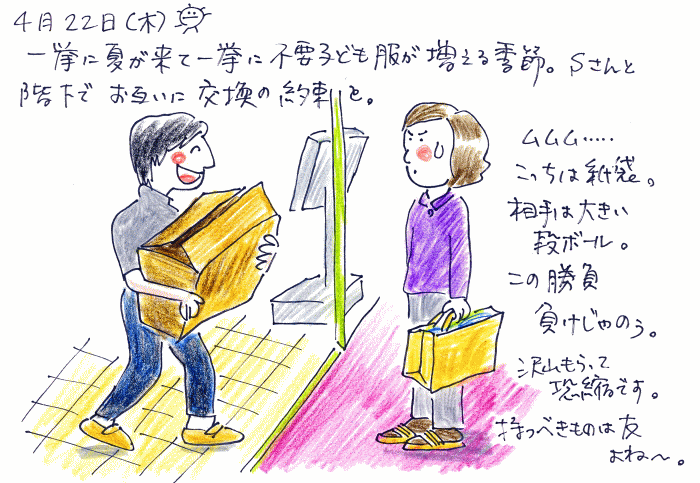 4月22日(木)
一挙に夏が来て一挙に不要子ども服が増える季節。Sさんと
階下でお互いに交換の約束を。
ムムム.....
こっちは紙袋。
相手は大きい
段ボール。
この勝負
負けじゃのう。
沢山もらって
恐縮です。
持つべきものは友
よね〜。